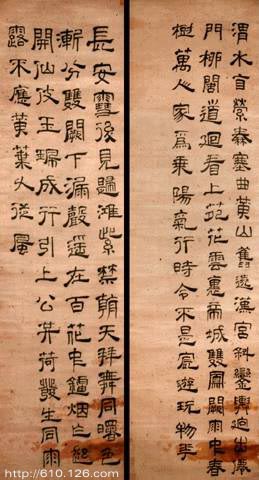 渭水自縈秦塞曲黃山舊遶漢宮斜鑾輿迥出僊
門柳閣道迴看上苑花雲裏帝城雙鳳闕雨中春
樹萬人家爲乘陽氣行時令不是宸遊玩物華
長安雪後見歸鴻紫禁朝天拜舞同曙色
漸分雙闕下漏聲遥在百花中鑪烟乍起
開仙仗玉珮成行引上公共荷發生同雨
露不應黃葉久從風
http://610.126.com